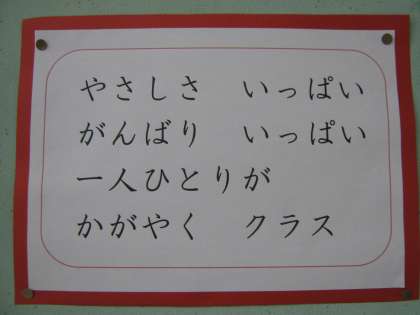 やさしさ　いっぱい
がんばり　いっぱい
一人ひとりが
かがやく　クラス